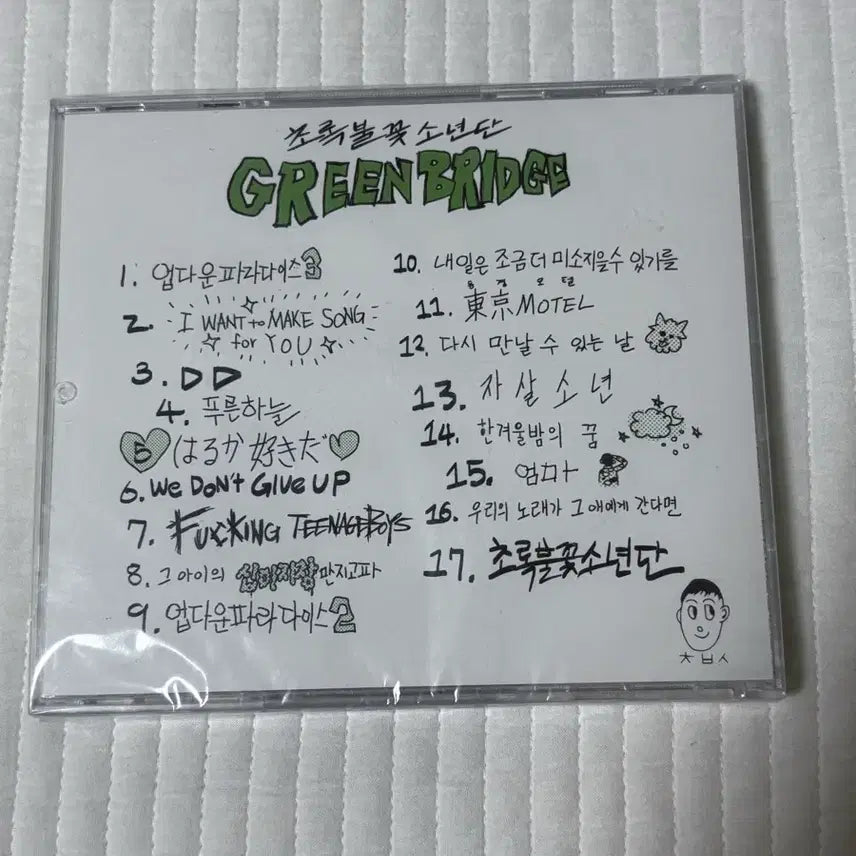 초록불꽃소년단
GREEN BRIDGE
1. 업다운파라다이스3
2. I WANT to MAKE SONG
for YOU
3. DD
4. 푸른하늘
5 はるか 好きだ
6. We DON't GIVE UP
7. FUCKING TEENAGE BOYS
8. 그 아이의 심미자장 만지고파
9. 업다운파라다이스2
10. 내일은 조금 더 미소지을 수 있기를
동경모텔
11. 東京 MOTEL
12. 다시 만날 수 있는 날
13. 자살소년
14. 한겨울밤의 꿈
15. 엄마
16. 우리의 노래가 그 애에게 간다면
17. 초록불꽃소년단
ㅊㅂㅅ